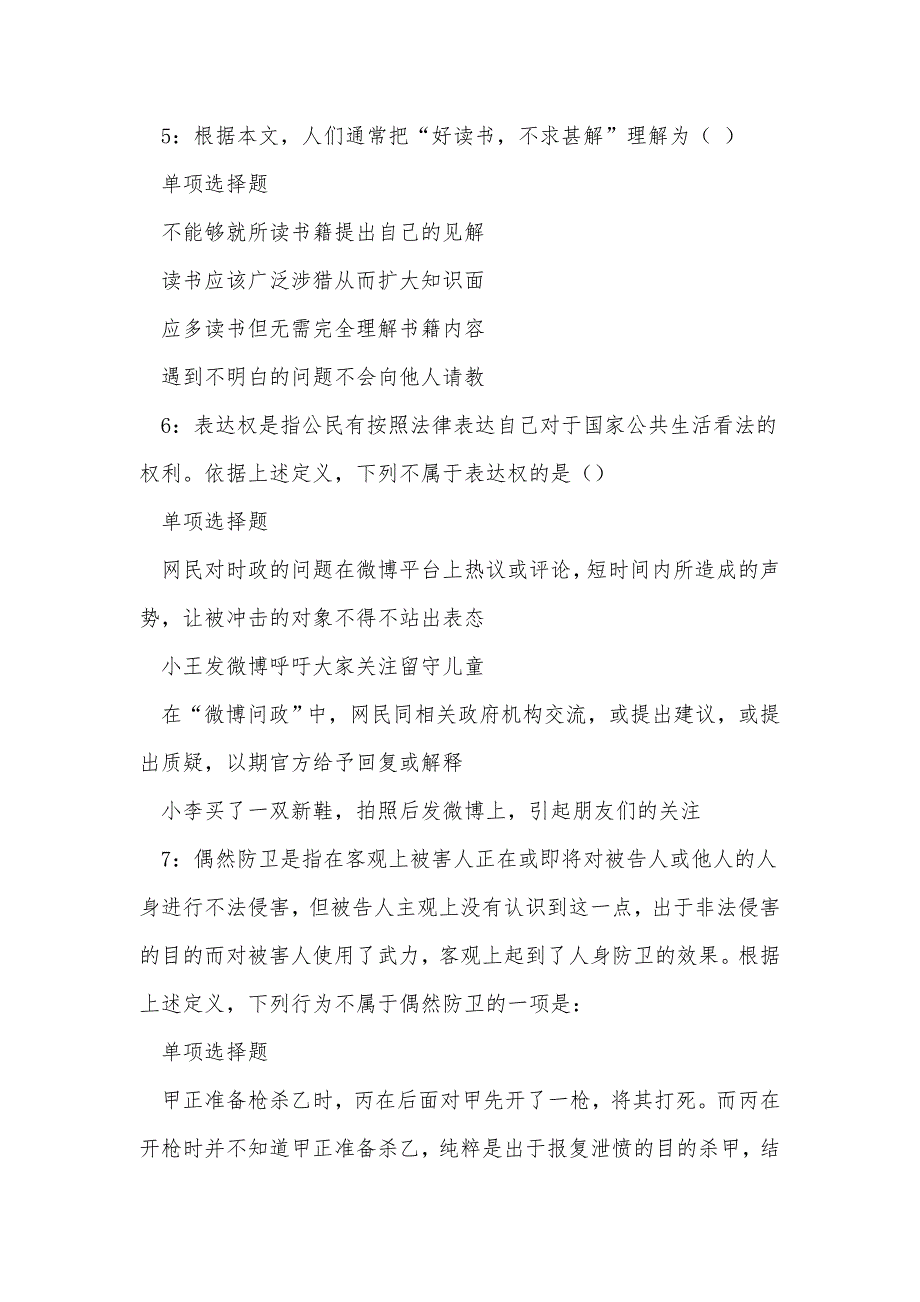 5：根据本文，人们通常把“好读书，不求甚解”理解为（ ）
单项选择题
不能够就所读书籍提出自己的见解
读书应该广泛涉猎从而扩大知识面
应多读书但无需完全理解书籍内容
遇到不明白的问题不会向他人请教
6：表达权是指公民有按照法律表达自己对于国家公共生活看法的
权利。依据上述定义，下列不属于表达权的是（）
单项选择题
网民对时政的问题在微博平台上热议或评论，短时间内所造成的声
势，让被冲击的对象不得不站出表态
小王发微博呼吁大家关注留守儿童
在“微博问政”中，网民同相关政府机构交流，或提出建议，或提
出质疑，以期官方给予回复或解释
小李买了一双新鞋，拍照后发微博上，引起朋友们的关注
7：偶然防卫是指在客观上被害人正在或即将对被告人或他人的人
身进行不法侵害，但被告人主观上没有认识到这一点，出于非法侵害
的目的而对被害人使用了武力，客观上起到了人身防卫的效果。根据
上述定义，下列行为不属于偶然防卫的一项是：
单项选择题
甲正准备枪杀乙时，丙在后面对甲先开了一枪，将其打死。而丙在
开枪时并不知道甲正准备杀乙，纯粹是出于报复泄愤的目的杀甲，结